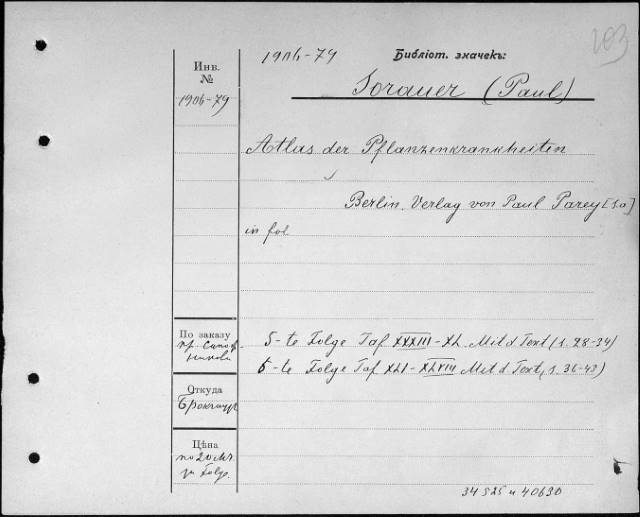 163
1906-79 Библіот. значекъ:
Инв.
№
1906-79
Sorauer (Paul)
Atlas der Pflanzenkrankheiten
Berlin. Verlag von Paul Parey [s.a]
in fol
По заказу
5-te Folge Taf XXXIII-XL. Mit d Text (s. 28-34)
6-te Folge Taf XLI-XLVIII Mit d Text (s. 36-43)
Откуда
Цѣна
по 20 Mk.
34525 и 40630